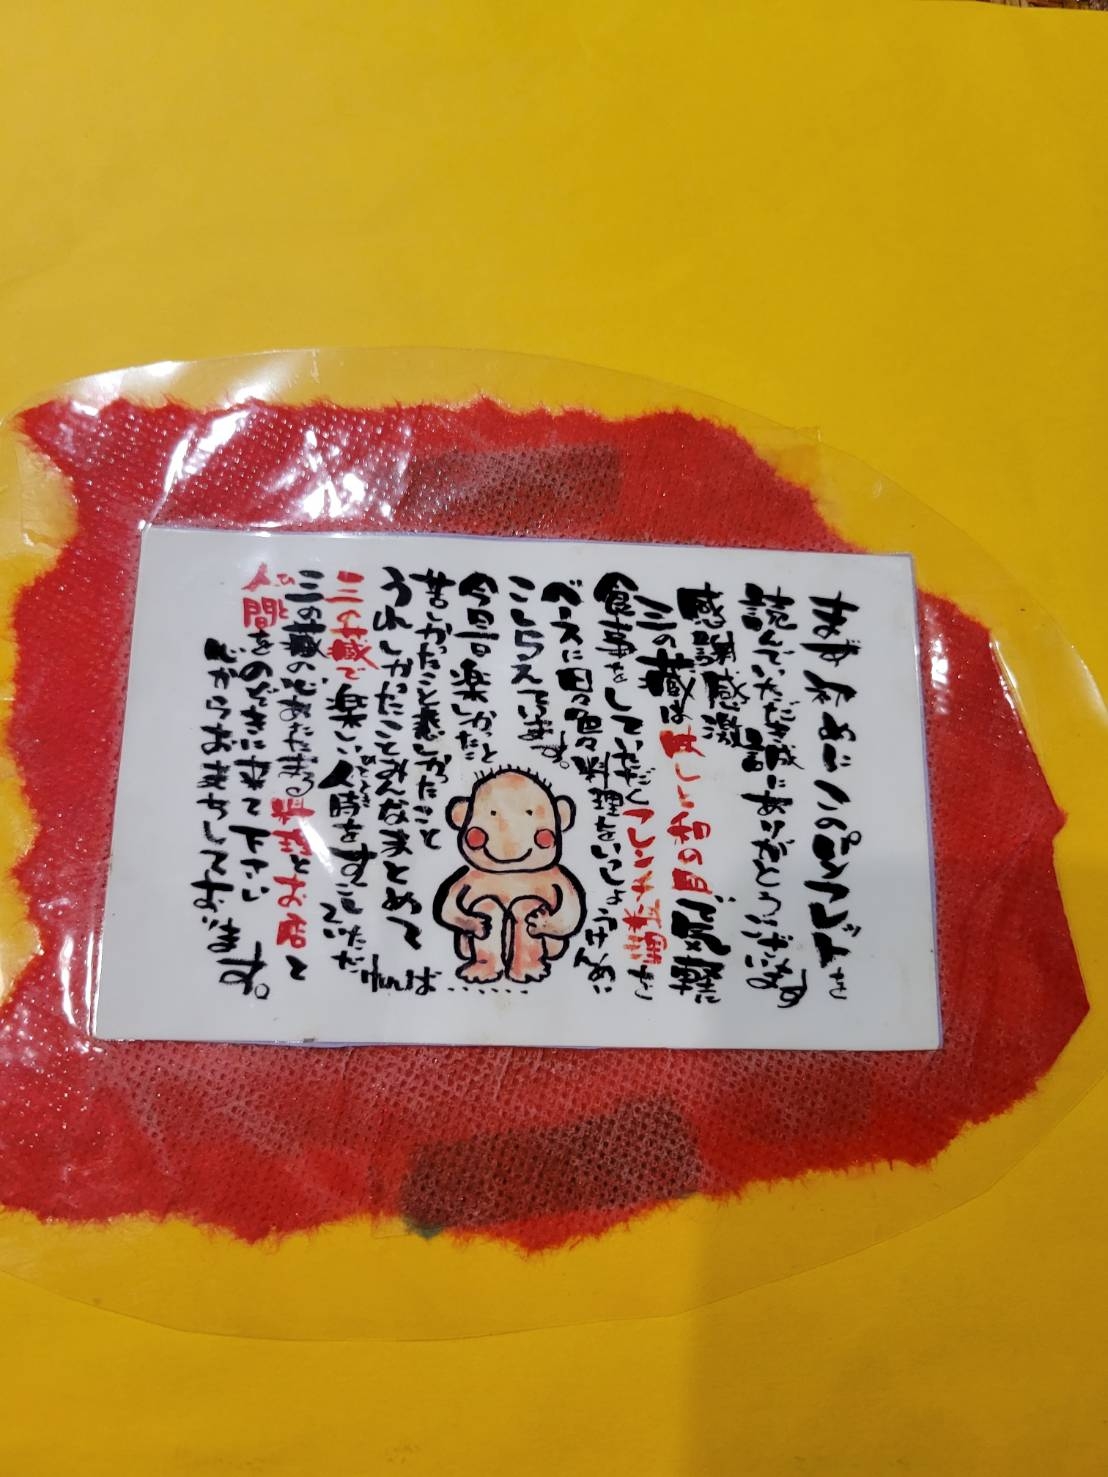 まず初めにこのパンフレットを
読んでいただき誠にありがとうございます
感謝感激
三の蔵ははしと和の皿で気軽に
食事をしていただくフレンチ料理を
ベースに日々色々料理をいっしょうけんめい
こしらえています。
今日一日楽しかったこと
苦しかったこと悲しかったこと
うれしかったことみんなまとめて
三の蔵で楽しい人時をすごしていただければ……
ひととき
三の蔵の心あたたまる料理とお店と
人間をのぞきに来て下さい
ひと
心からお待ちしております。